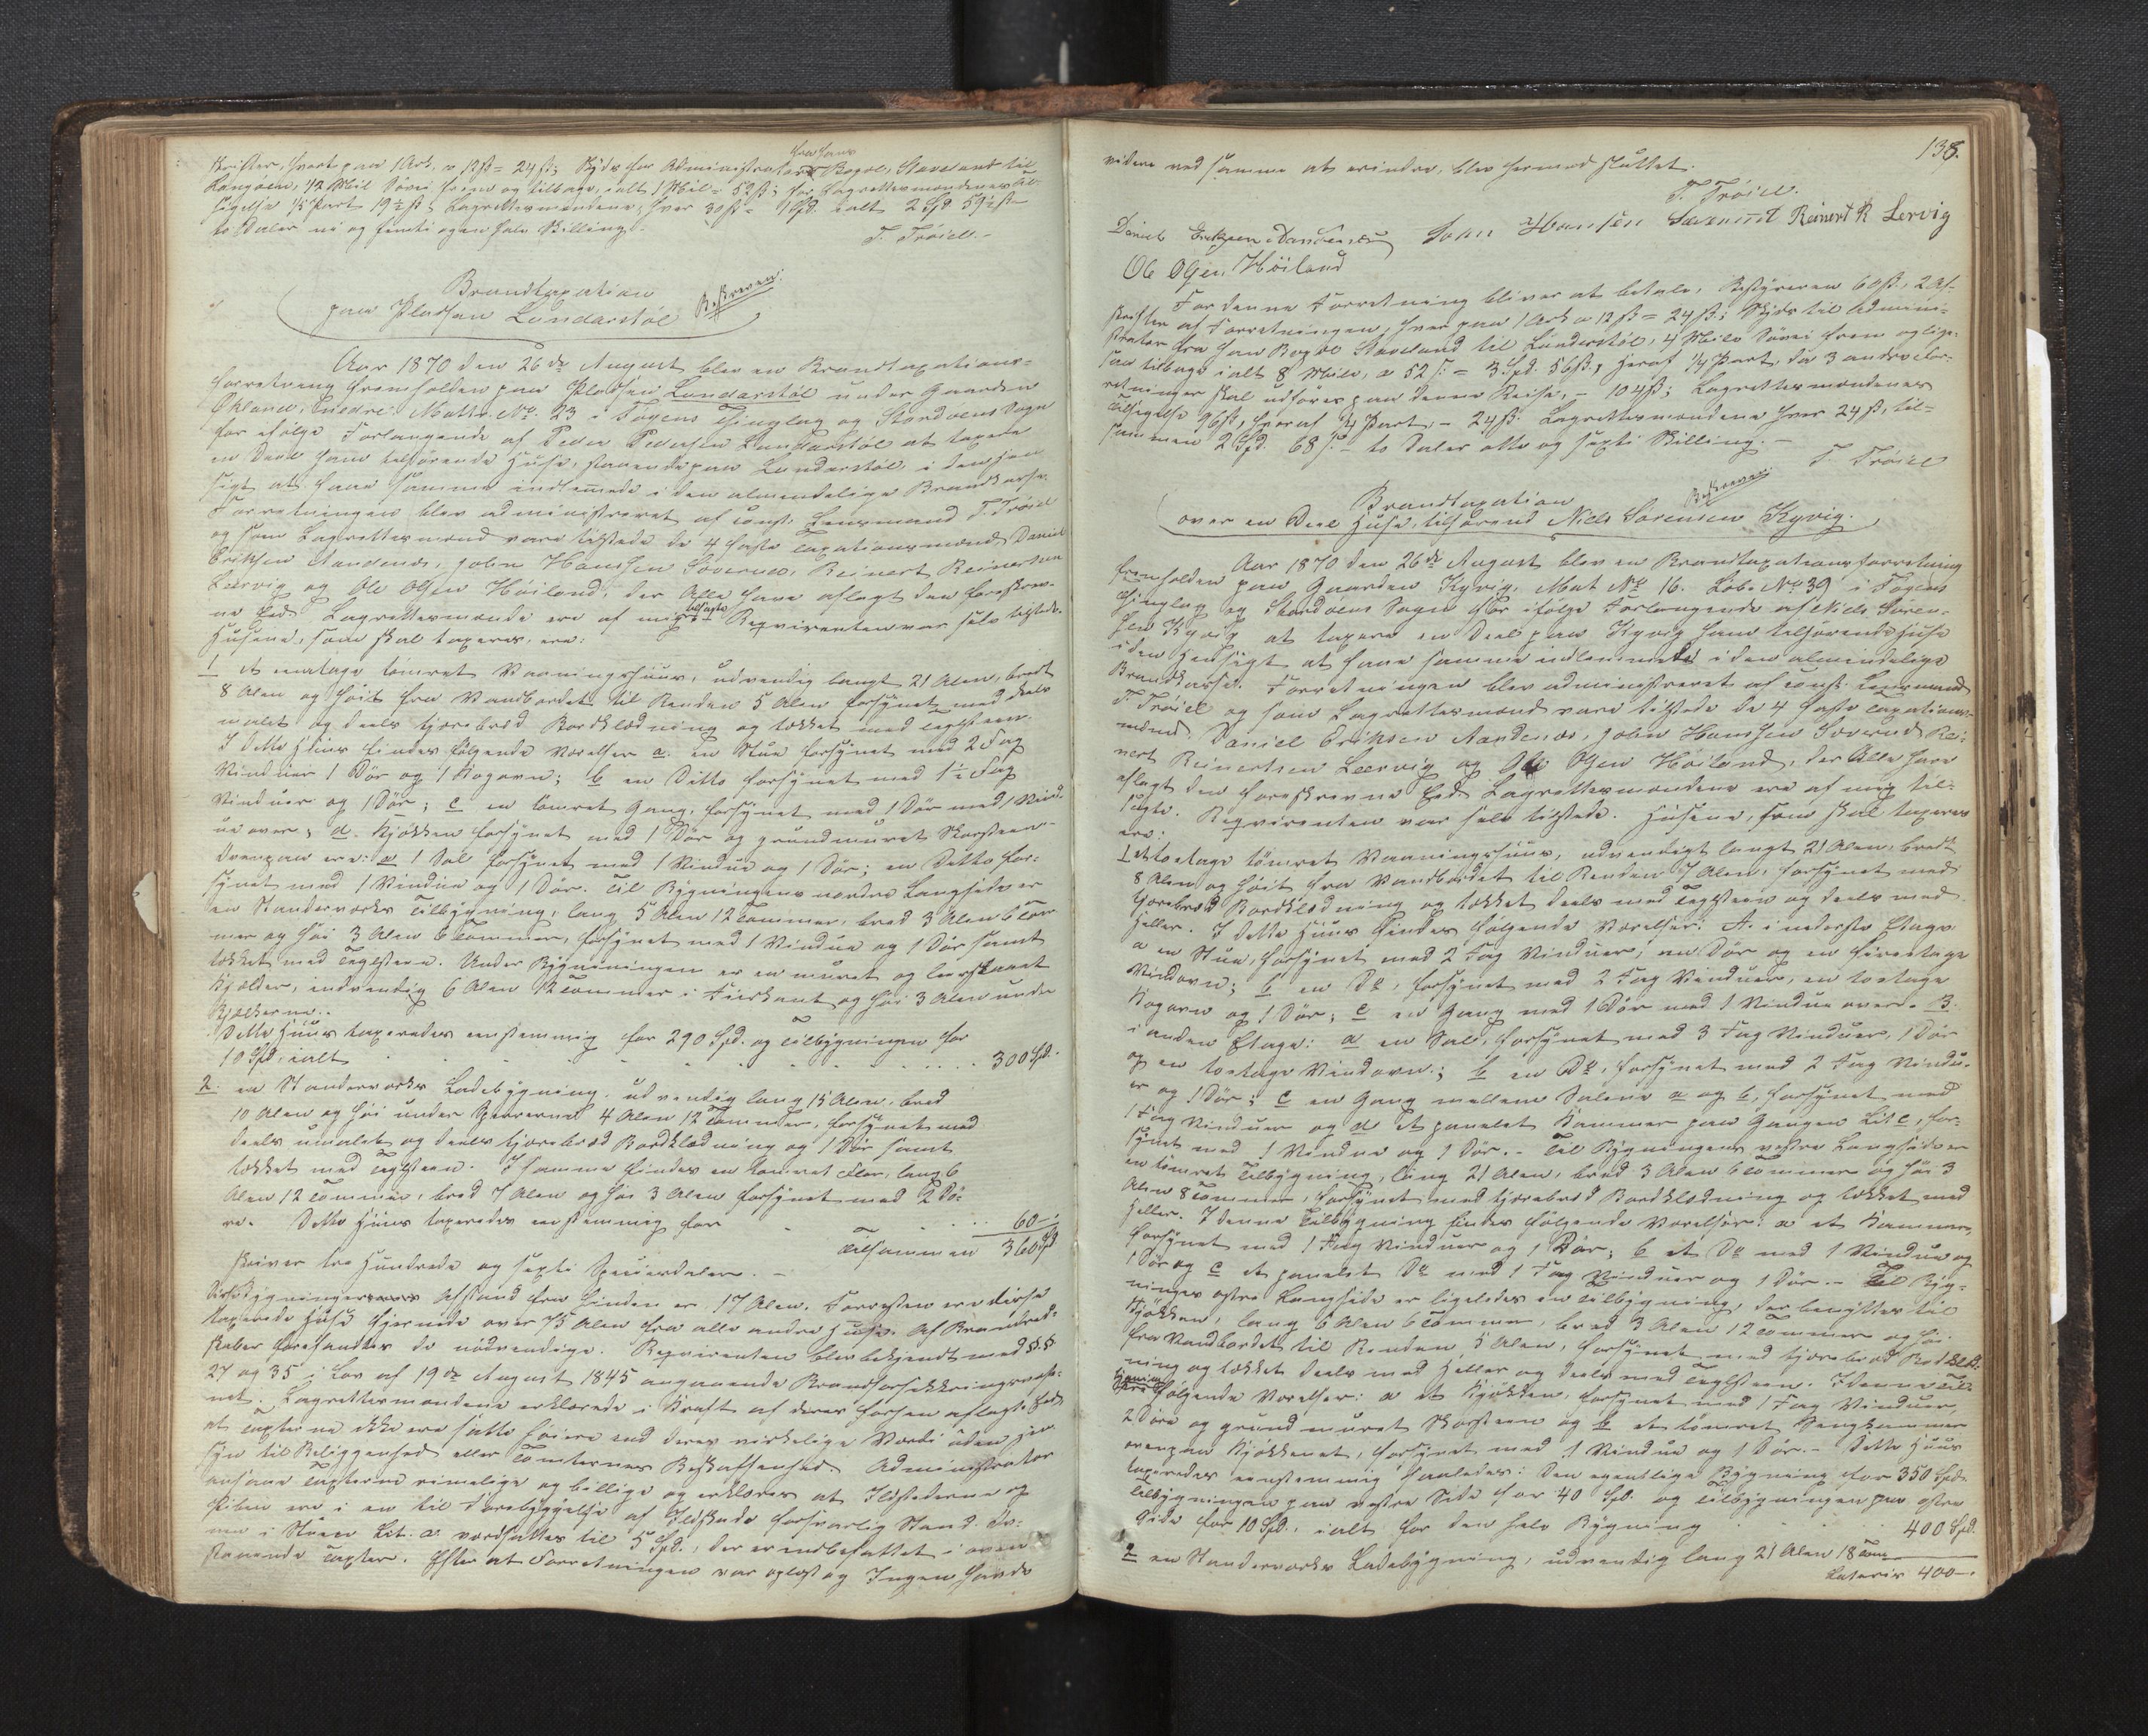 skrifter, hver paa 1 Ark, a 12 ß = 24 ß; Skyds for Administrator fra hans Bopæl, Staveland til
Langøen, 1/2 Miil Søvei frem og tilbage, ialt 1 Miil = 52 ß; for Lagrettesmændenes Til-
sigelse 1/5 Part 19 1/2 ß; Lagrettesmændene, hver 30 ß = 1 Spd. ialt 2 Spd 59 1/2 ß
to Daler ni og femti og en halv Skilling.
T. Trøiel.
Brandtaxation
paa Pladsen Lundarstøl
Beskreven.
Aar 1870 den 26de August blev en Brandtaxations-
forretning fremholden paa Pladsen Lundarstøl under Gaarden
Økland, Matr. No. 23 i Føyens Thinglag og Stordøens Sogn
for ifølge Forlangende af Peder Pedersen Lundarstøl at taxere
en Deel ham tilhørende Huse, staaende paa Lundarstøl, i den Hen-
sigt at faae samme indlemmede i den almindelige Brandkasse.
Forretningen blev administreret af const. Lensmand T. Trøiel
og som Lagrettesmænd vare tilstede de 4 faste Taxationsmænd, Daniel
Eriksen Aandenes, John Hansen Søvernes, Reinert Reinertsen
Leervig og Ole Olsen Høiland, der Alle have aflagt den foreskrev-
ne Eed. Lagrettesmænde ere af mig tilsagte. Reqvirenten var selv tilstede.
Husene, som skal taxeres, ere:
1 et enetages tømret Vaaningshuus, udvendig langt 21 Alen, bredt
8 Alen og høit fra Vandbordet til Renden 5 Alen forsynet med deels
malet og deels tjærebræd Bordklædning og tækket med Teglsteen.
I dette Huus findes følgende Værelser a. en Stue forsynet med 2 Fag
Vinduer 1 Dør og 1 Kogovn; b en Ditto forsynet med 1 1/2 Fag
Vinduer og 1 Dør; c en tømret Gang, forsynet med 1 Dør med 1 Vind-
ue over; d. Kjøkken forsynet med 1 Dør og grundmuret Skorsteen.
Ovenpaa ere: a 1 Sal forsynet med 1 Vindue og 1 Dør; en Ditto for-
synet med 1 Vindue og 1 Dør. Til Bygningens nordre Langside er
en Standerværks Tilbygning, lang 5 Alen 12 Tommer, bred 3 Alen 6 Tom-
mer og høi 3 Alen 6 Tommer, forsynet med 1 Vindue og 1 Dør samt
tækket med Teglsteen. Under Bygningen er en muret og leerslaaet
Kjælder, indvendig 6 Alen 12 Tommer i Fiirkant og høi 3 Alen under
Bjælkerne.
Dette Huus taxeredes eenstemmig for 290 Spd. og Tilbygningen for
10 Spd, ialt . . . . . 300 Spd.
2. en Standerværks Ladebygning, udvendig lang 15 Alen, bred
10 Alen og høi under Sperrerne 4 Alen 12 Tommer, forsynet med
deels umalet og deels tjærebræd Bordklædning og 1 Dør samt
tækket med Teglsteen. I samme findes en tømret Flor, lang 6
Alen 12 Tommer, bred 7 Alen og høi 3 Alen forsynet med 2 Dø-
re. Dette Huus taxeredes eenstemmig for . . . 60 —
Tilsammen 360 Spd
skriver tre Hundrede og sexti Speciedaler. —
Disse Bygningers Afstand fra hinden er 17 Alen. Forresten ere disse
taxerede Huse fjernede over 75 Alen fra alle andre Huse. Af Brandred-
skaber forefandtes de nødvendige. Reqvirenten blev bekjendt med §§
27 og 35 i Lov af 19de August 1845 angaaende Brandforsikkringsvæse-
net. Lagrettesmændene erklærede i Kraft af deres forhen aflagte Eed,
at Taxterne ikke ere satte høiere end deres virkelige Værdi uden Hen-
syn til Beliggenhed eller Tomternes Beskaffenhed. Administrator
ansaae Taxterne rimelige og billige og erklærer at Ildstederne og
Piben ere i en til Forebyggelse af Ildskade forsvarlig Stand. Ov-
nen i Stuen Lit. a. værdsattes til 5 Spd., der er indbefattet i oven-
staaende Taxter. Efter at Forretningen var oplæst og Ingen havde
138.
videre ved samme at erindre, blev hermed sluttet.
T. Trøiel.
Daniel Eriksen Aandenes John Hansen Søvernes Reinert R Lervig
Ole Olsen Høiland
For denne Forretning bliver at betale: Bestyreren 60 ß, 2 Af-
skrifter af Forretningen, hver paa 1 Ark a 12 ß = 24 ß; Skyds til Admini-
strator fra hans Bopæl Staveland til Lunderstøl, 4 Mile Søvei frem og lige-
saa tilbage ialt 8 Mile, a 52 ß = 3 Spd. 56 ß, heraf 1/4 Part, da 3 andre For-
retninger skal udføres paa denne Reise, — 104 ß; Lagrettesmændenes
Tilsigelse 96 ß, hvoraf 1/4 Part, — 24 ß. Lagrettesmændene hver 24 ß, til-
sammen 2 Spd. 68 ß — to Daler otte og sexti Skilling. —
T. Trøiel
Brandtaxation
Beskreven
over en Deel Huse, tilhørend Niels Sørensen Kyvig.
Aar 1870 den 26de August blev en Brandtaxationsforretning
fremholden paa Gaarden Kyvig, Mat No. 16. Løb. No. 39 i Føyens
Thinglag og Stordøens Sogn for ifølge Forlangende af Niels Søren-
sen Kyvig at taxere en Deel paa Kyvig ham tilhørende Huse
i den Hensigt at faae samme indlemmede i den almindelige
Brandkasse. Forretningen blev administreret af const. Lensmand
T. Trøiel og som Lagrettesmænd vare tilstede de 4 faste Taxations-
mænd: Daniel Eriksen Aandenes, John Hansen Søvernes, Rei-
nert Reinertsen Leervig og Ole Olsen Høiland, der Alle have
aflagt den foreskrevne Eed. Lagrettesmændene ere af mig til-
sagte. Reqvirenten var selv tilstede. Husene, som skal taxeres
ere:
1 et toetages tømret Vaaningshuus, udvendigt langt 21 Alen, bredt
8 Alen og høit fra Vandbordet til Renden 7 Alen, forsynet med
tjærebræd Bordklædning og tækket deels med Teglsteen og deels med
Heller. I dette Huus findes følgende Værelser: A. i nederste Etage:
a en Stue, forsynet med 2 Fag Vinduer, en Dør og en fireetages
Vindovn; b en Do, forsynet med 2 Fag Vinduer, en toetages
Kogovn og 1 Dør; c en Gang med 1 Dør med 1 Vindue over. B.
i anden Etage: a en Sal, forsynet med 3 Fag Vinduer, 1 Dør
og en toetages Vindovn; b en Do, forsynet med 2 Fag Vindu-
er og 1 Dør; c en Gang mellem Salene a og b, forsynet med
1 Fag Vinduer og d et panelet Kammer paa Gangen Lit c, for-
synet med 1 Vindue og 1 Dør. — Til Bygningens vestre Langside er
en tømret Tilbygning, lang 21 Alen, bred 3 Alen 6 Tommer og høi 3
Alen 8 Tommer, forsynet med tjærebræd Bordklædning og tækket med
Heller. I denne Tilbygning findes følgende Værelser: a et Kammer,
forsynet med 1 Fag Vinduer og 1 Dør; b et Do med 1 Vindue og
1 Dør og c et panelet Do med 1 Fag Vinduer og 1 Dør. — Til Byg-
ningens østre Langside er ligeledes en Tilbygning, der benyttes til
Kjøkken, lang 6 Alen 6 Tommer, bred 3 Alen 12 Tommer og høi
fra Vandbordet til Renden 5 Alen, forsynet med tjærebræd Bordklæd-
ning og tækket deels med Heller og deels med Teglsteen. I denne Til-
bygning følgende Værelser: a et Kjøkken, forsynet med 1 Fag Vinduer,
2 Døre og grundmuret Skorsteen og b et tømret Sengkammer
ovenpaa Kjøkkenet, forsynet med 1 Vindue og 1 Dør. — Dette Huus
taxeredes eenstemmig saaledes: Den egentlige Bygning for 350 Spd.
Tilbygningen paa vestre Side for 40 Spd. og Tilbygningen paa østre
Side for 10 Spd., ialt for den hele Bygning 400 Spd.
2 en Standerværks Ladebygning, udvendig lang 21 Alen 18 Tom
Lateris 400 —.